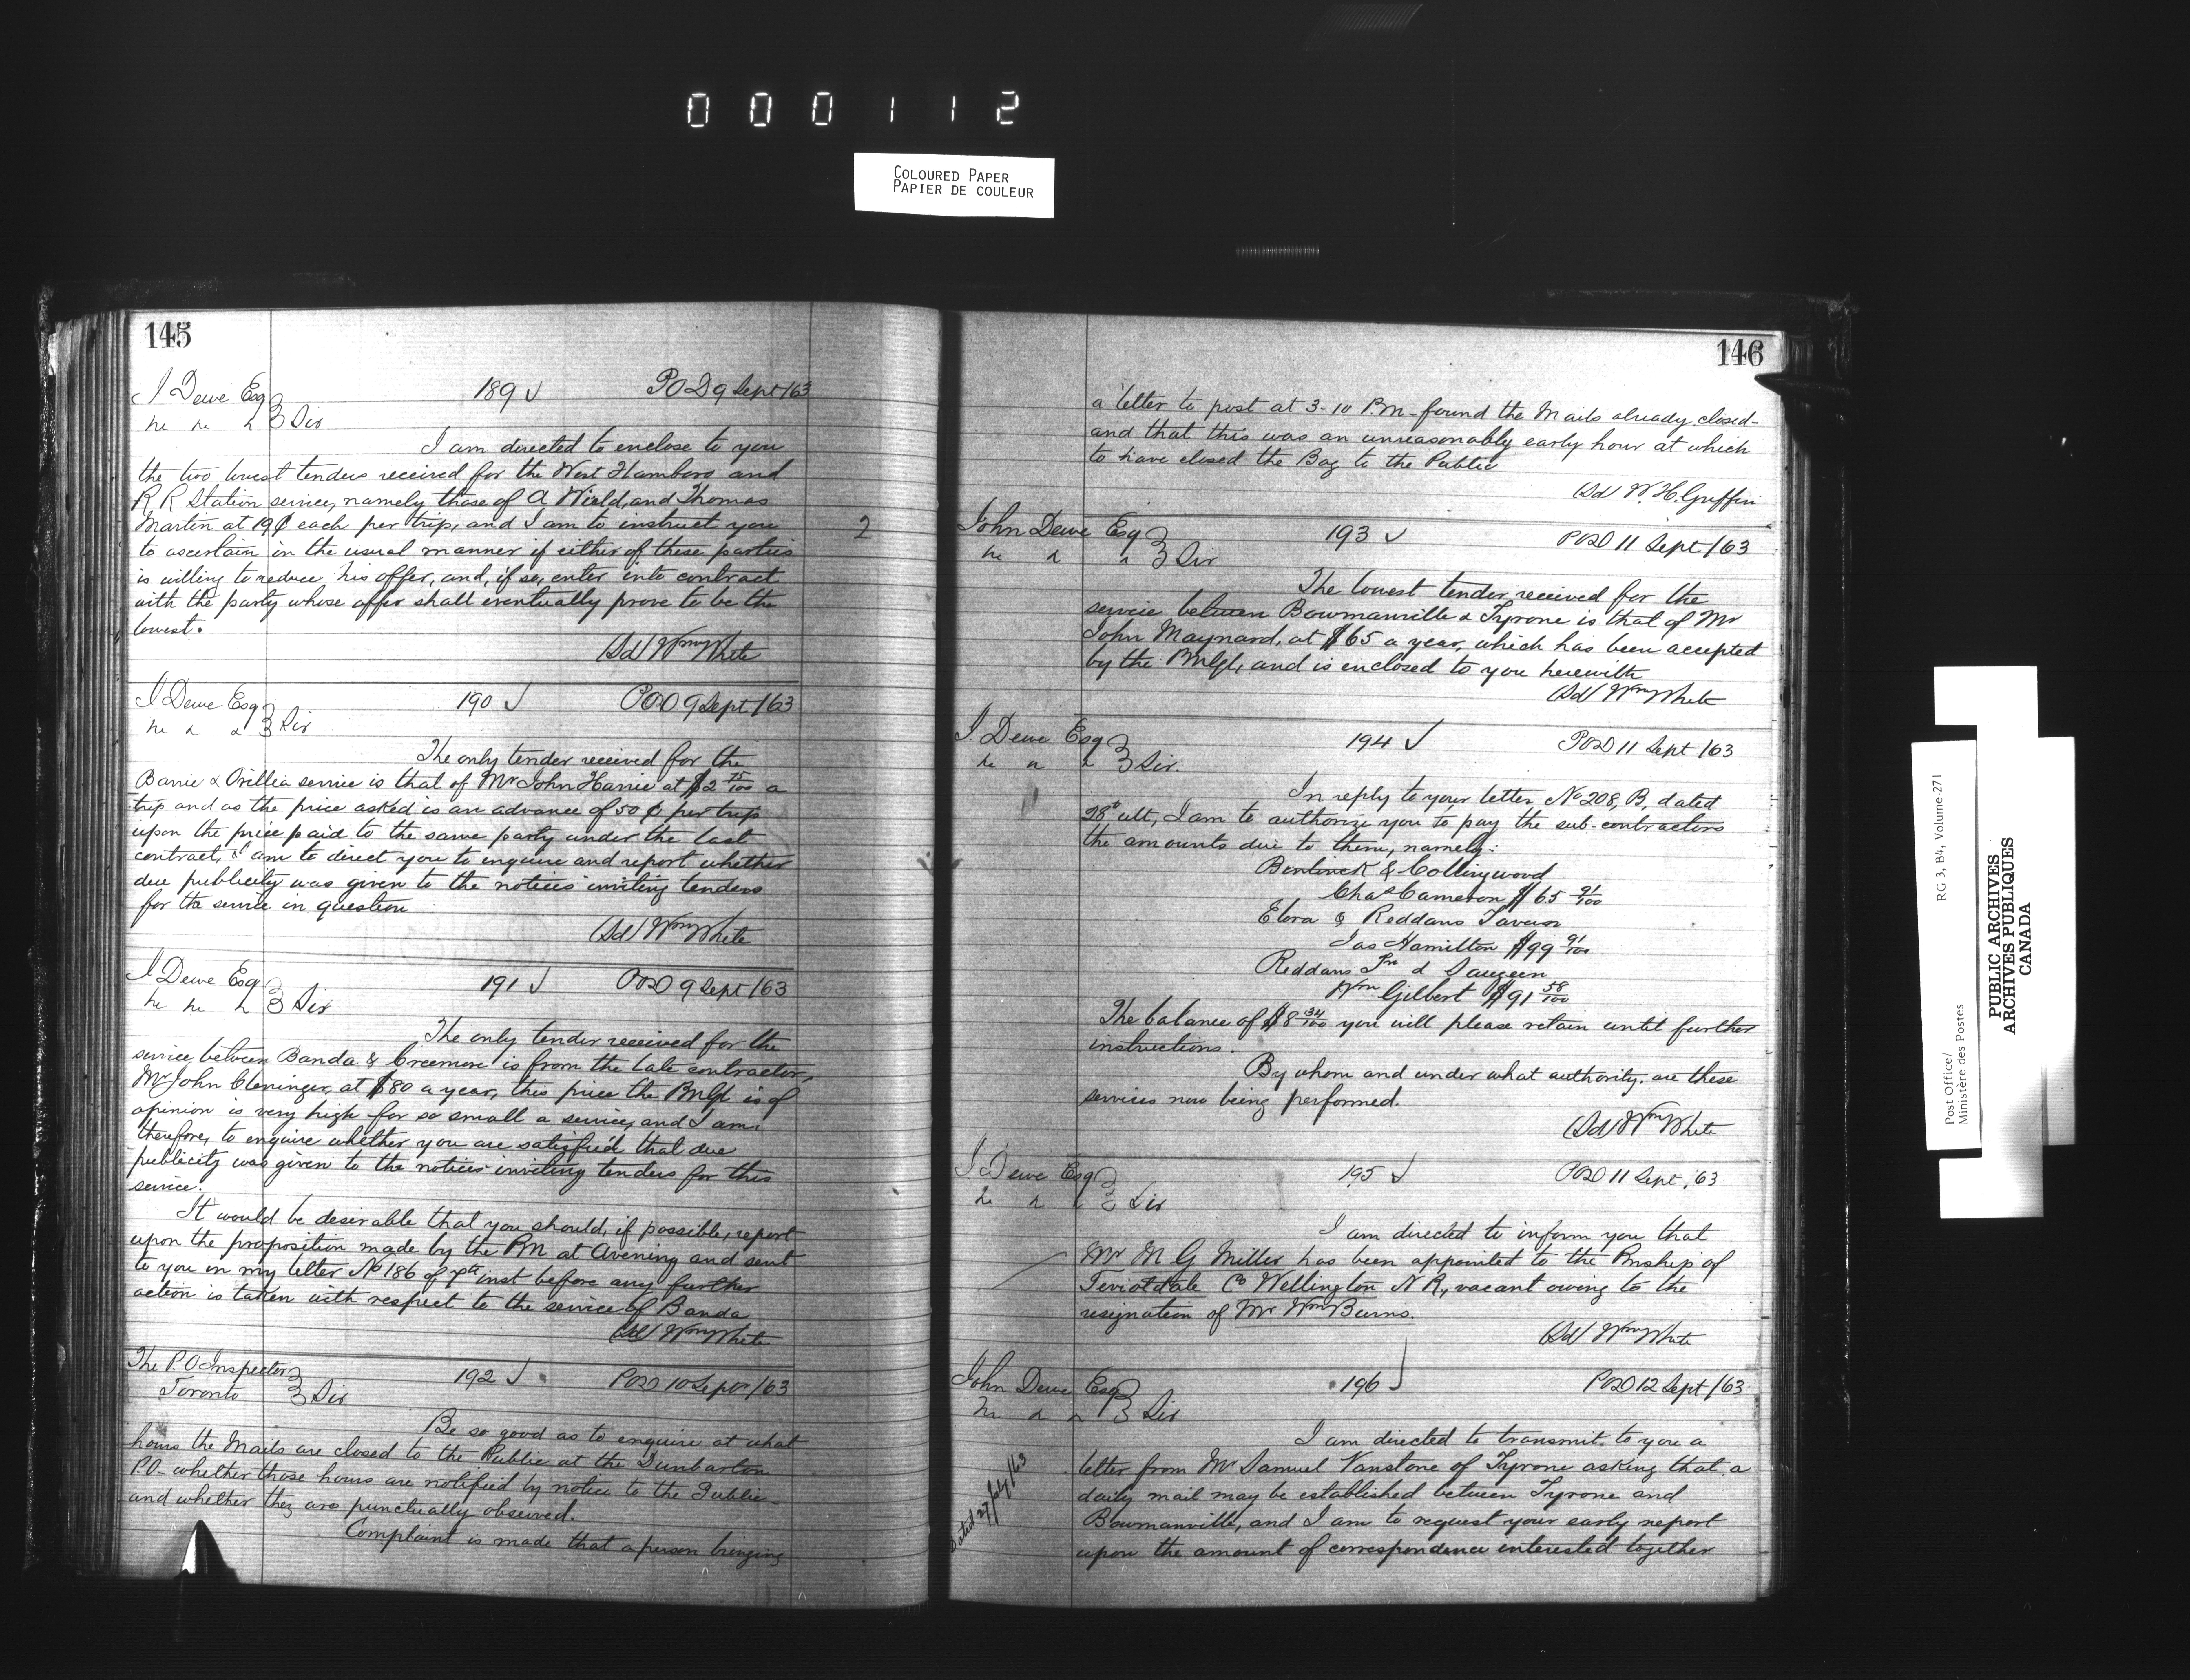 000112
COLOURED PAPER
PAPIER DE COULEUR
145
J Dewe Esq
189 ✓
POD 9 Sept/63
Sir
I am directed to enclose to you
the two lowest tenders received for the West Flamboro and
R. R Station service, namely those of A Wield, and Thomas
Martin at 19¢ each per trip, and I am to instruct you
2
to ascertain in the usual manner if either of these parties
is willing to reduce his offer, and, if so, enter into contract
with the party whose offer shall eventually prove to be the
lowest.
(Sd) Wm White
J Dewe Esq
190 ✓
POD 9 Sept/63
Sir
The only tender received for the
Barrie & Orillia service is that of Mr John Harvie at $2 75/100 a
trip and as the price asked is an advance of 50 ¢ per trip
upon the price paid to the same party under the last
contract, I am to direct you to enquire and report whether
due publicity was given to the notices inviting tenders
for the service in question
(Sd) Wm White
J Dewe Esq
191 ✓
POD 9 Sept/63
Sir
The only tender received for the
service between Banda & Creemore is from the late contractor,
Mr John Cleninger, at $80 a year, this price the PMGl is of
opinion is very high for so small a service, and I am,
therefore, to enquire whether you are satisfied that due
publicity was given to the notices inviting tenders for this
service.
It would be desirable that you should, if possible, report
upon the proposition made by the PM at Avening and sent
to you in my letter No 186 of 7th inst before any further
action is taken with respect to the service of Banda
(Sd) Wm White
The P. O Inspector
Toronto
192 ✓
POD 10 Sepr/63
Sir
Be so good as to enquire at what
hours the Mails are closed to the Public at the Dunbarton
P.O - whether those hours are notified by notice to the Public -
and whether they are punctually observed.
Complaint is made that a person bringing
146
a letter to post at 3-10 P.M - found the Mails already closed -
and that this was an unreasonably early hour at which
to have closed the Bag to the Public
(Sd) W. H. Griffin
John Dewe Esq
193 ✓
POD 11 Sept/63
Sir
The lowest tender received for the
service between Bowmanville & Tyrone is that of Mr
John Maynard, at $65 a year, which has been accepted
by the PMGl, and is enclosed to you herewith
(Sd) Wm White
J. Dewe Esq
194 ✓
POD 11 Sept/63
Sir.
In reply to your letter, No 208, B, dated
28t ult, I am to authorize you to pay the sub-contractors
the amounts due to them, namely:
Bentinck & Collingwood
Chas Cameron $65 91/100
Elora & Reddans Tavern
Jas Hamilton $99 91/100
Reddans Tn & Saugeen
Wm Gilbert $91 58/100
The balance of $8 34/100 you will please retain until further
instructions.
By whom and under what authority, are these
services now being performed.
(Sd) Wm White
J Dewe Esq
195 ✓
POD 11 Sept, 63
Sir
I am directed to inform you that
Mr M G Miller has been appointed to the Pmship of
Teviotdale Co Wellington N R, vacant owing to the
resignation of Mr Wm Burns.
(Sd) Wm White
John Dewe Esq
196 ✓
POD 12 Sept/63
Sir
I am directed to transmit to you a
letter from Mr Samuel Vanstone of Tyrone asking that a
Dated 27 July/63
daily mail may be established between Tyrone and
Bowmanville, and I am to request your early report
upon the amount of correspondence interested together
Post Office/
Ministère des Postes
RG 3, B4, Volume 271
PUBLIC ARCHIVES
ARCHIVES PUBLIQUES
CANADA